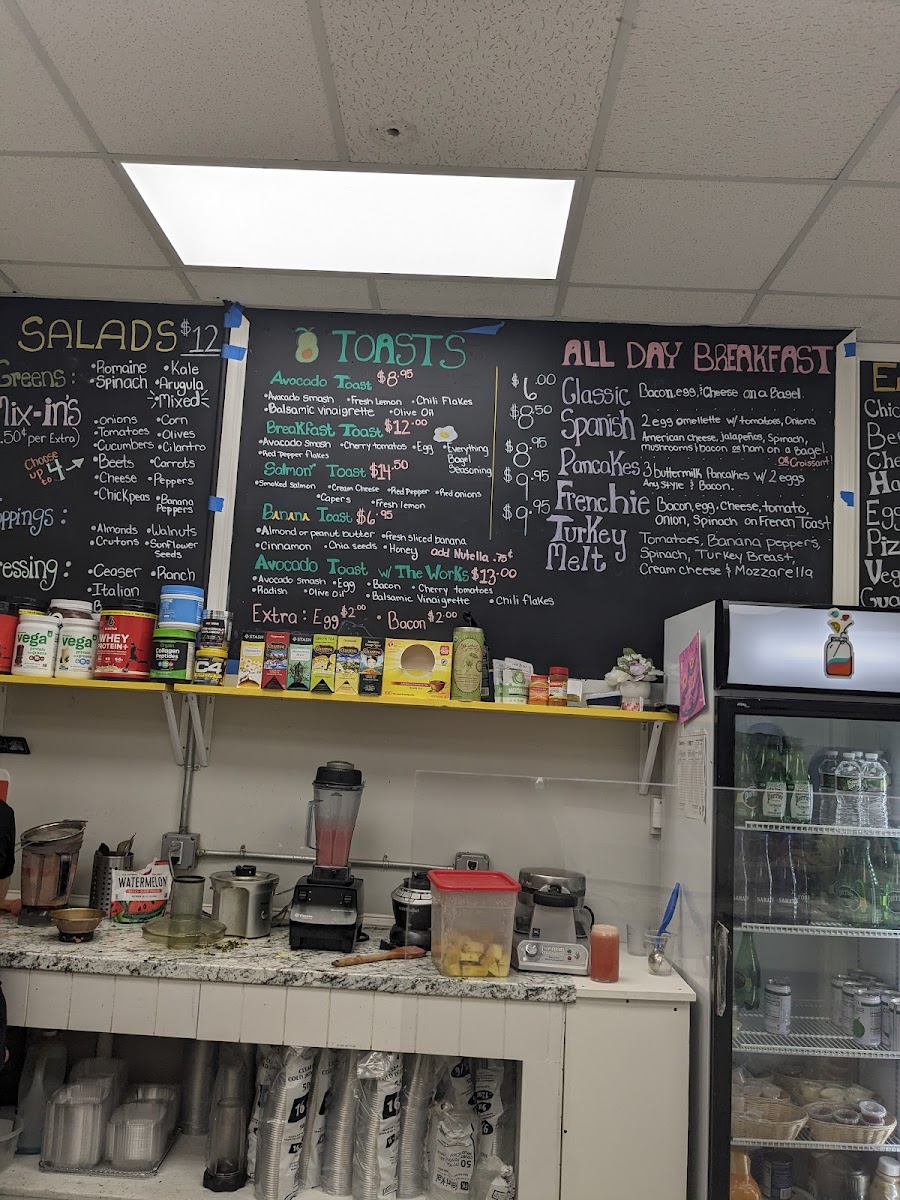 SALADS $12
Greens:
•Romaine •Kale
•Spinach •Arugula
Mixed
Mix-in's
.50¢ per Extra)
Choose up to 4
•onions •Corn
•Tomatoes •Olives
•Cucumbers •Cilantro
•Beets •Carrots
•Cheese •Peppers
•Chickpeas •Banana Peppers
oppings:
•Almonds •Walnuts
•Crutons •Sunflower Seeds
ressing:
•Ceaser •Ranch
•Italian
TOASTS
Avocado Toast $8.95
•Avocado smash •Fresh Lemon •Chili Flakes
•Balsamic vinaigrette •Olive Oil
Breakfast Toast $12.00
•Avocado Smash •Cherry tomatos •Egg •Everything Bagel Seasoning
•Red Pepper flakes
Salmon Toast $14.50
•Smoked salmon •Cream Cheese •Red Pepper •Red onions
•Capers •Fresh lemon
Banana Toast $6.95
•Almond or peanut butter •fresh sliced banana
•Cinnamon •Chia seeds •Honey add Nutella .75¢
Avocado Toast w/ The Works $13.00
•Avocado smash •Egg •Bacon •Cherry tomatoes
•Radish •Olive Oil •Balsamic Vinaigrette •Chili flakes
Extra: Egg $2.00 • Bacon $2.00
ALL DAY BREAKFAST
$6.00 Classic Bacon, egg, & Cheese on a Bagel
$8.50 Spanish 2 egg omellette w/ tomatoes, Onions
American cheese, jalapeños, Spinach,
mushrooms & bacon or ham on a Bagel
or Croissant!
$8.95 Pancakes 3 buttermilk Pancakes w/ 2 eggs
Any style & Bacon.
$9.95 Frenchie Bacon, egg, Cheese, tomato,
Onion, Spinach on French Toast
$9.95 Turkey Melt Tomatoes, Banana peppers,
Spinach, Turkey Breast,
Cream cheese & Mozzarella
Chic
Be
Che
Ha
Egg
Piz
Veg
Gua
vega
vega
WHEY PROTEIN+
Collagen Peptides
C4
STASH
STASH
WATERMELON
perrier
16
50